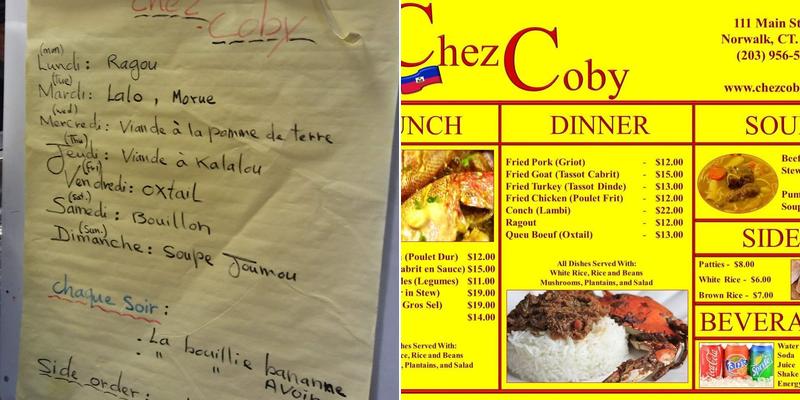 chez
Coby
(mon)
Lundi: Ragou
(Tue)
Mardi: Lalo, Morue
(wed)
Mercredi: Viande à la pomme de terre
(Thu)
Jeudi: Viande à Kalalou
(Fri)
Vendredi: oxtail
(Sat.)
Samedi: Bouillon
(Sun.)
Dimanche: Soupe Joumou
chaque Soir:
- La bouillie bananne
" " Avoin
Side order:
Chez Coby
111 Main St
Norwalk, CT.
(203) 956-5
www.chezcob
UNCH
(Poulet Dur) $12.00
abrit en Sauce) $15.00
les (Legumes) $11.00
r in Stew) $19.00
Gros Sel) $19.00
$14.00
hes Served With:
ce, Rice and Beans
, Plantains, and Salad
DINNER
Fried Pork (Griot) - $12.00
Fried Goat (Tassot Cabrit) - $15.00
Fried Turkey (Tassot Dinde) - $13.00
Fried Chicken (Poulet Frit) - $12.00
Conch (Lambi) - $22.00
Ragout - $12.00
Queu Boeuf (Oxtail) - $13.00
All Dishes Served With:
White Rice, Rice and Beans
Mushrooms, Plantains, and Salad
SOU
Beef
Stew
Pum
Soup
SIDE
Patties - $8.00
White Rice - $6.00
Brown Rice - $7.00
BEVERA
Coca-Cola
Fanta
Sprite
Water
Soda
Juice
Shake
Energy